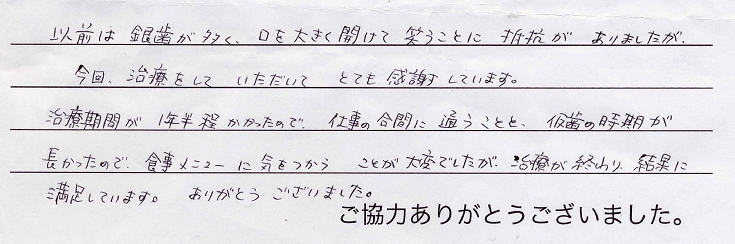 以前は銀歯が多く、口を大きく開けて笑うことに抵抗がありましたが、
今回、治療をしていただいてとても感謝しています。
治療期間が1年半程かかったので、仕事の合間に通うことと、仮歯の時期が
長かったので、食事メニューに気をつかうことが大変でしたが、治療が終わり、結果に
満足しています。ありがとうございました。
ご協力ありがとうございました。